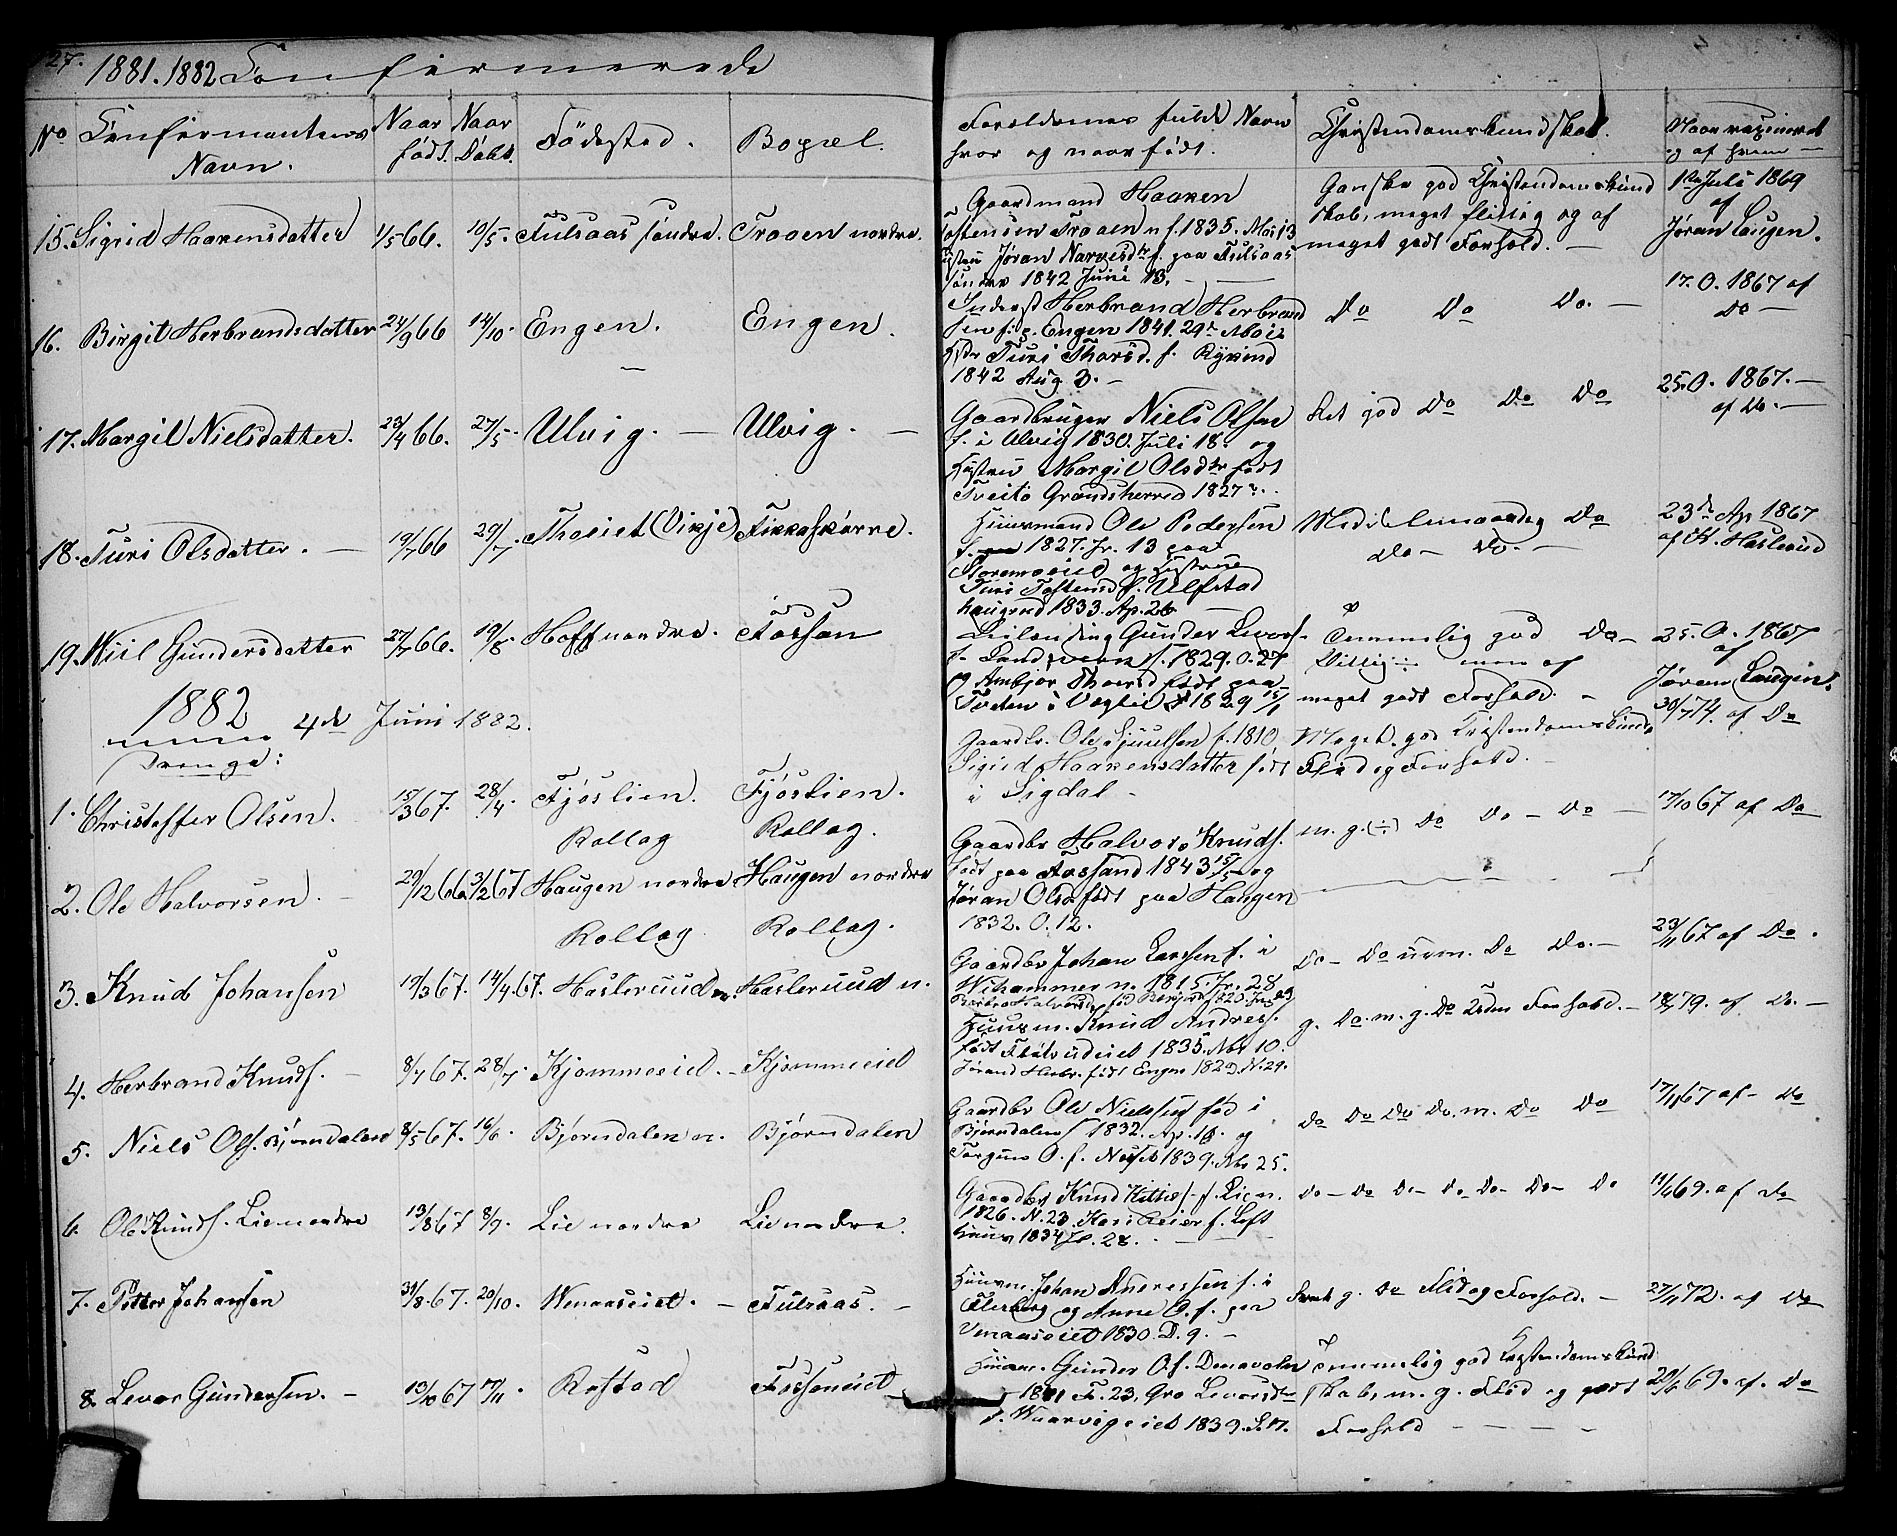 27. 1881. 1882 Confirmerede
No Confirmantens Navn. Naar født. Naar Døbt. Fødested. Bopæl. Foreldrenes fulde Navn hvor og naar født. Christendomskundskab. Naar vaxineret og af hvem —
15. Sigrid Haakensdatter 1/5 66. 10/5. Fulsaas søndre. Traaen nordre.
Gaardmand Haaken
Tostensen Traaen n f. 1835. Mai 13
Hustru Jøran Narvesdtr f. paa Fulsaas
søndre 1842 Juni 13. —
Ganske god Christendomskund
skab, meget flittig og af
meget godt Forhold. —
1ste Juli 1869
af
Jøran Laugen.
16. Birgit Herbrandsdatter 24/9 66 14/10. Engen. Engen.
Inderst Herbrand Herbrand
sen f. p. Engen 1841. 29de Mai
Hstr Turi Thorsd. f. Rykind
1842 Aug 3. —
Do Do Do. —
17. O. 1867 af
Do —
17. Margit Nielsdatter. 23/4 66. 27/5. Ulvig. — Ulvig. —
Gaardbruger Niels Olsen
f. i Ulvig 1830. Juli 18. og
Hustru Margit Olsdtr født
Tveito Gransherred 1827
Ret god Do Do Do
25. O. 1867. —
af Do. —
18. Turi Olsdatter. — 19/7 66 29/7. Thoeiet (Vikje) Fikkaskjørre.
Huusmand Ole Pedersen
f. 1827. Jr. 13 paa
Storemoeiet og Hustrue
Turi Tostensd f. Ulfstad
haugend 1833. Ap. 26 —
Middelmaadig Do
Do — Do. —
23de Ap 1867
af K. Haslerud
19. Kiil Gundersdatter 27/7 66. 19/8. Hoff nordre. Fossan
Leilending Gunder Levors.
f. Landsverk s. 1829. O. 27
og Ambjør Thoersd født paa
Toden i Veglie 1829 15/1
Temmelig god Do —
Villig — men af
meget godt Forhold. —
25. O. 1867
af
Jøran Laugen.
1882 4de Juni 1882.
Drenge:
1. Christoffer Olsen. 15/3 67. 28/4. Fjøslien. Fjøslien.
Rollag Rollag.
Gaardbr. Ole Sjuulsen f. 1810
Sigrid Haakensdatter født
i Sigdal —
Meget god Kristendomskunds
Flid og Forhold. —
30/7 74. af Do
2. Ole Halvorsen. — 29/12 66 3/2 67 Haugen nordre Haugen nordre
Rollag Rollag.
Gaardbr Halvor Knuds.
født paa Aassand 1843 15/5 og
Jøran Olsd født paa Haugen
1832. O. 12.
m. g. (÷) Do Do — Do —
17/10 67 af Do
3. Knud Johansen 19/3 67. 14/4 67. Haslerud n. Haslerud n.
Gaardbr Johan Larssen f. i
Wihammer n. 1815 Jr. 28
Do — Do Do Do. —
23/11 67 af Do.
4. Herbrand Knuds. — 8/7 67. 28/7. Kjommeeiet. — Kjommeeiet
Huusm. Knud Andres.
født 1835. Nbr 10.
Jørand Herbr. født Engen 1829. N. 29.
g. Do. m. g. Do Forhold. —
79. af Do. —
5. Niels Ols. Bjørndalen 8/5 67. 16/6. Bjørndalen n. Bjørndalen
Gaardbr Ole Nielssen fød i
Bjørndalen 1832. Ap. 18. og
Torgun O. f. 1839. Nbr 25.
Do Do Do Do. m. Do Do
17/11 67 af — Do
6. Ole Knuds. Lie nordre 13/8 67 8/9. Lie nordre Lie nordre.
Gaardbr Knud Kittils. f. Lie n.
1826. N. 23. Kari f. Loft
huus 1834 28.
Do — Do Do — Do Do — Do — Do
69. af Do
7. Petter Johansen 31/8 67. 20/10. Wenaaseiet. — Fulsaas. —
Huusm. Johan Andreassen f. i
Flesberg og Anne O. f. paa
Venaaseiet 1830. D. 9. —
g. Do Flid og Forhold. —
27/11 72. af Do
8. Levor Gundersen. — 13/10 67 17/11. Rostad Fossaneiet
Huusm. Gunder Os.
F. 23. Gro Levorsdtr
f. Waarvigeiet 1839.
Temmelig god Kristendomskund
skab, m. g. Flid og godt
Forhold — — — —
20/6 69. af. Do